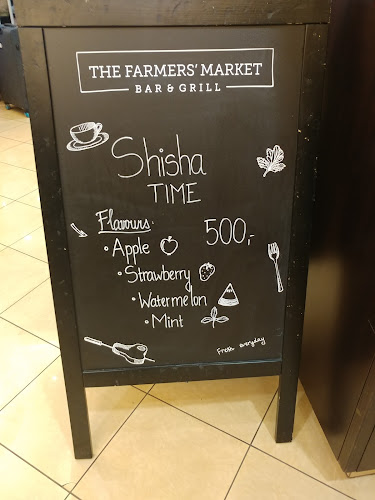 THE FARMERS' MARKET
BAR & GRILL
Shisha
TIME
Flavours:
500,-
• Apple
• Strawberry
• Watermelon
• Mint
Fresh everyday